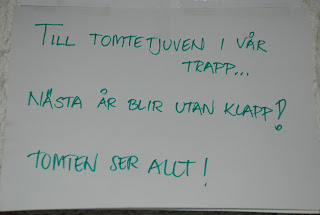 TILL TOMTETJUVEN I VÅR
TRAPP...
NÄSTA ÅR BLIR UTAN KLAPP!
TOMTEN SER ALLT!